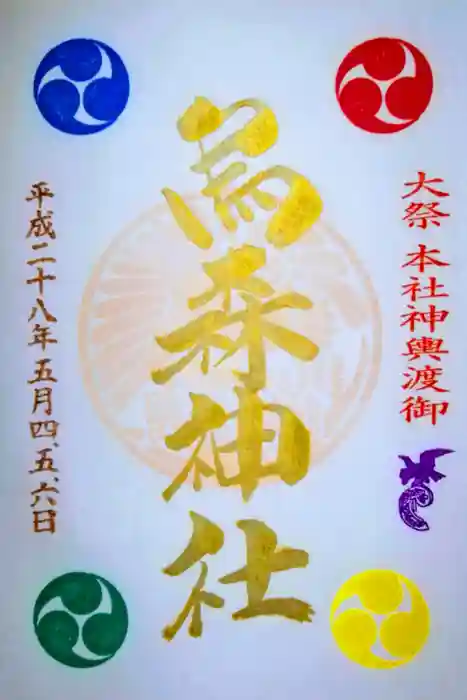 大祭 本社神輿渡御
烏森神社
平成二十八年五月四、五、六日